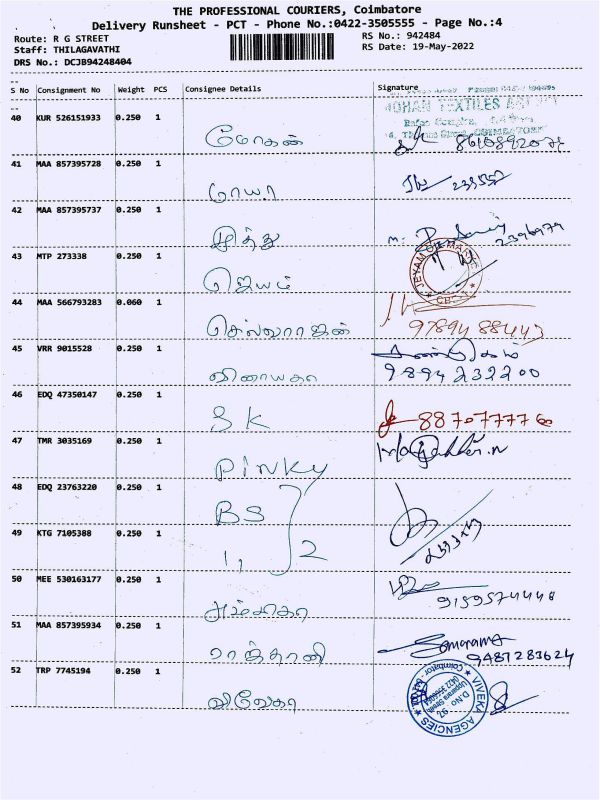 THE PROFESSIONAL COURIERS, Coimbatore
Delivery Runsheet - PCT - Phone No.:0422-3505555 - Page No.:4
Route: R G STREET
Staff: THILAGAVATHI
DRS No.: DCJB94248404
RS No.: 942484
RS Date: 19-May-2022
S No Consignment No Weight PCS Consignee Details Signature
MOHAN TEXTILES
40 KUR 526151933 0.250 1 மோகன்
41 MAA 857395728 0.250 1 மாயா
42 MAA 857395737 0.250 1 இந்து
43 MTP 273338 0.250 1 ஜெயம்
JEYAM
44 MAA 566793283 0.060 1 செல்வராஜன்
45 VRR 9015528 0.250 1 விநாயகா
9894232200
46 EDQ 47350147 0.250 1 SK
47 TMR 3035169 0.250 1 PINKY
48 EDQ 23763220 0.250 1 BS
49 KTG 7105388 0.250 1 1, 2
50 MEE 530163177 0.250 1 அம்பிகா
9159574448
51 MAA 857395934 0.250 1 ராஜ்தானி
9487283624
52 TRP 7745194 0.250 1 விவேகா
VIVEKA AGENCIES
D.No 97
Coimbatore